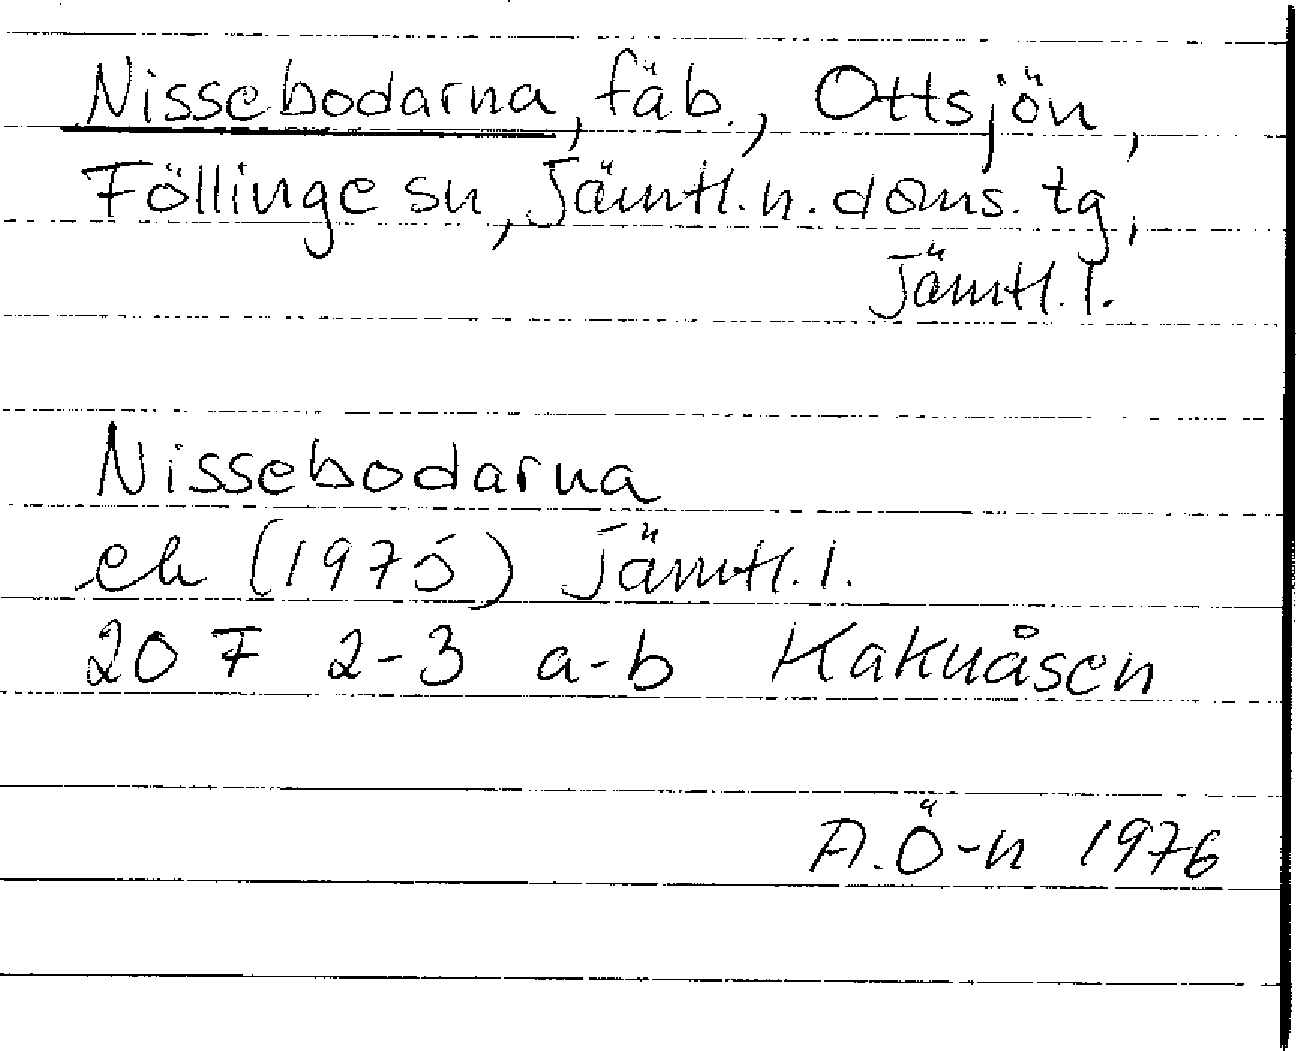 Nissebodarna, fäb., Ottsjön,
Föllinge sn, Jämtl. n. doms. tg,
Jämtl. l.
Nissebodarna
ek (1975) Jämtl. l.
20 F 2-3 a-b Kaknåsen
A. Ö-n 1976